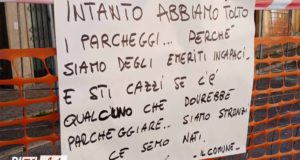 INTANTO ABBIAMO TOLTO
I PARCHEGGI... PERCHÉ
SIAMO DEGLI EMERITI INCAPACI
E STI CAZZI SE C'È
QUALCUNO CHE DOVREBBE
PARCHEGGIARE... SIAMO STRONZI
CE SEMO NATI.
IL COMUNE